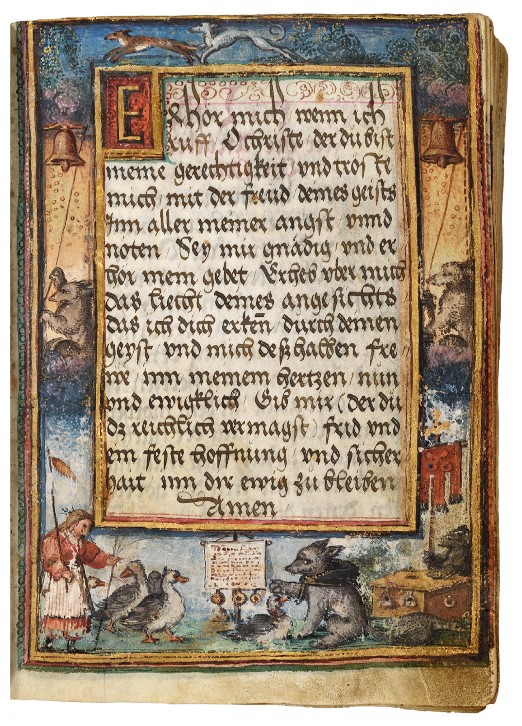 Erhor mich wenn ich
ruff O Christe der du bist
meine gerechtigkeit vnd troste
mich mit der freud deines geists
Inn aller meiner angst vnnd
noten Sey mir gnädig vnd er
hor mein gebet Erheb vber mich
das liecht deines angesichts
das ich dich erken̄ durch deinen
geyst vnd mich deßhalben fre
we inn meinem hertzen nun
vnd ewigklich Gib mir (der du
dz reichlich vermagst) frid vnd
ein feste hoffnung vnd sicher
hait inn dir ewig zu bleiben
Amen